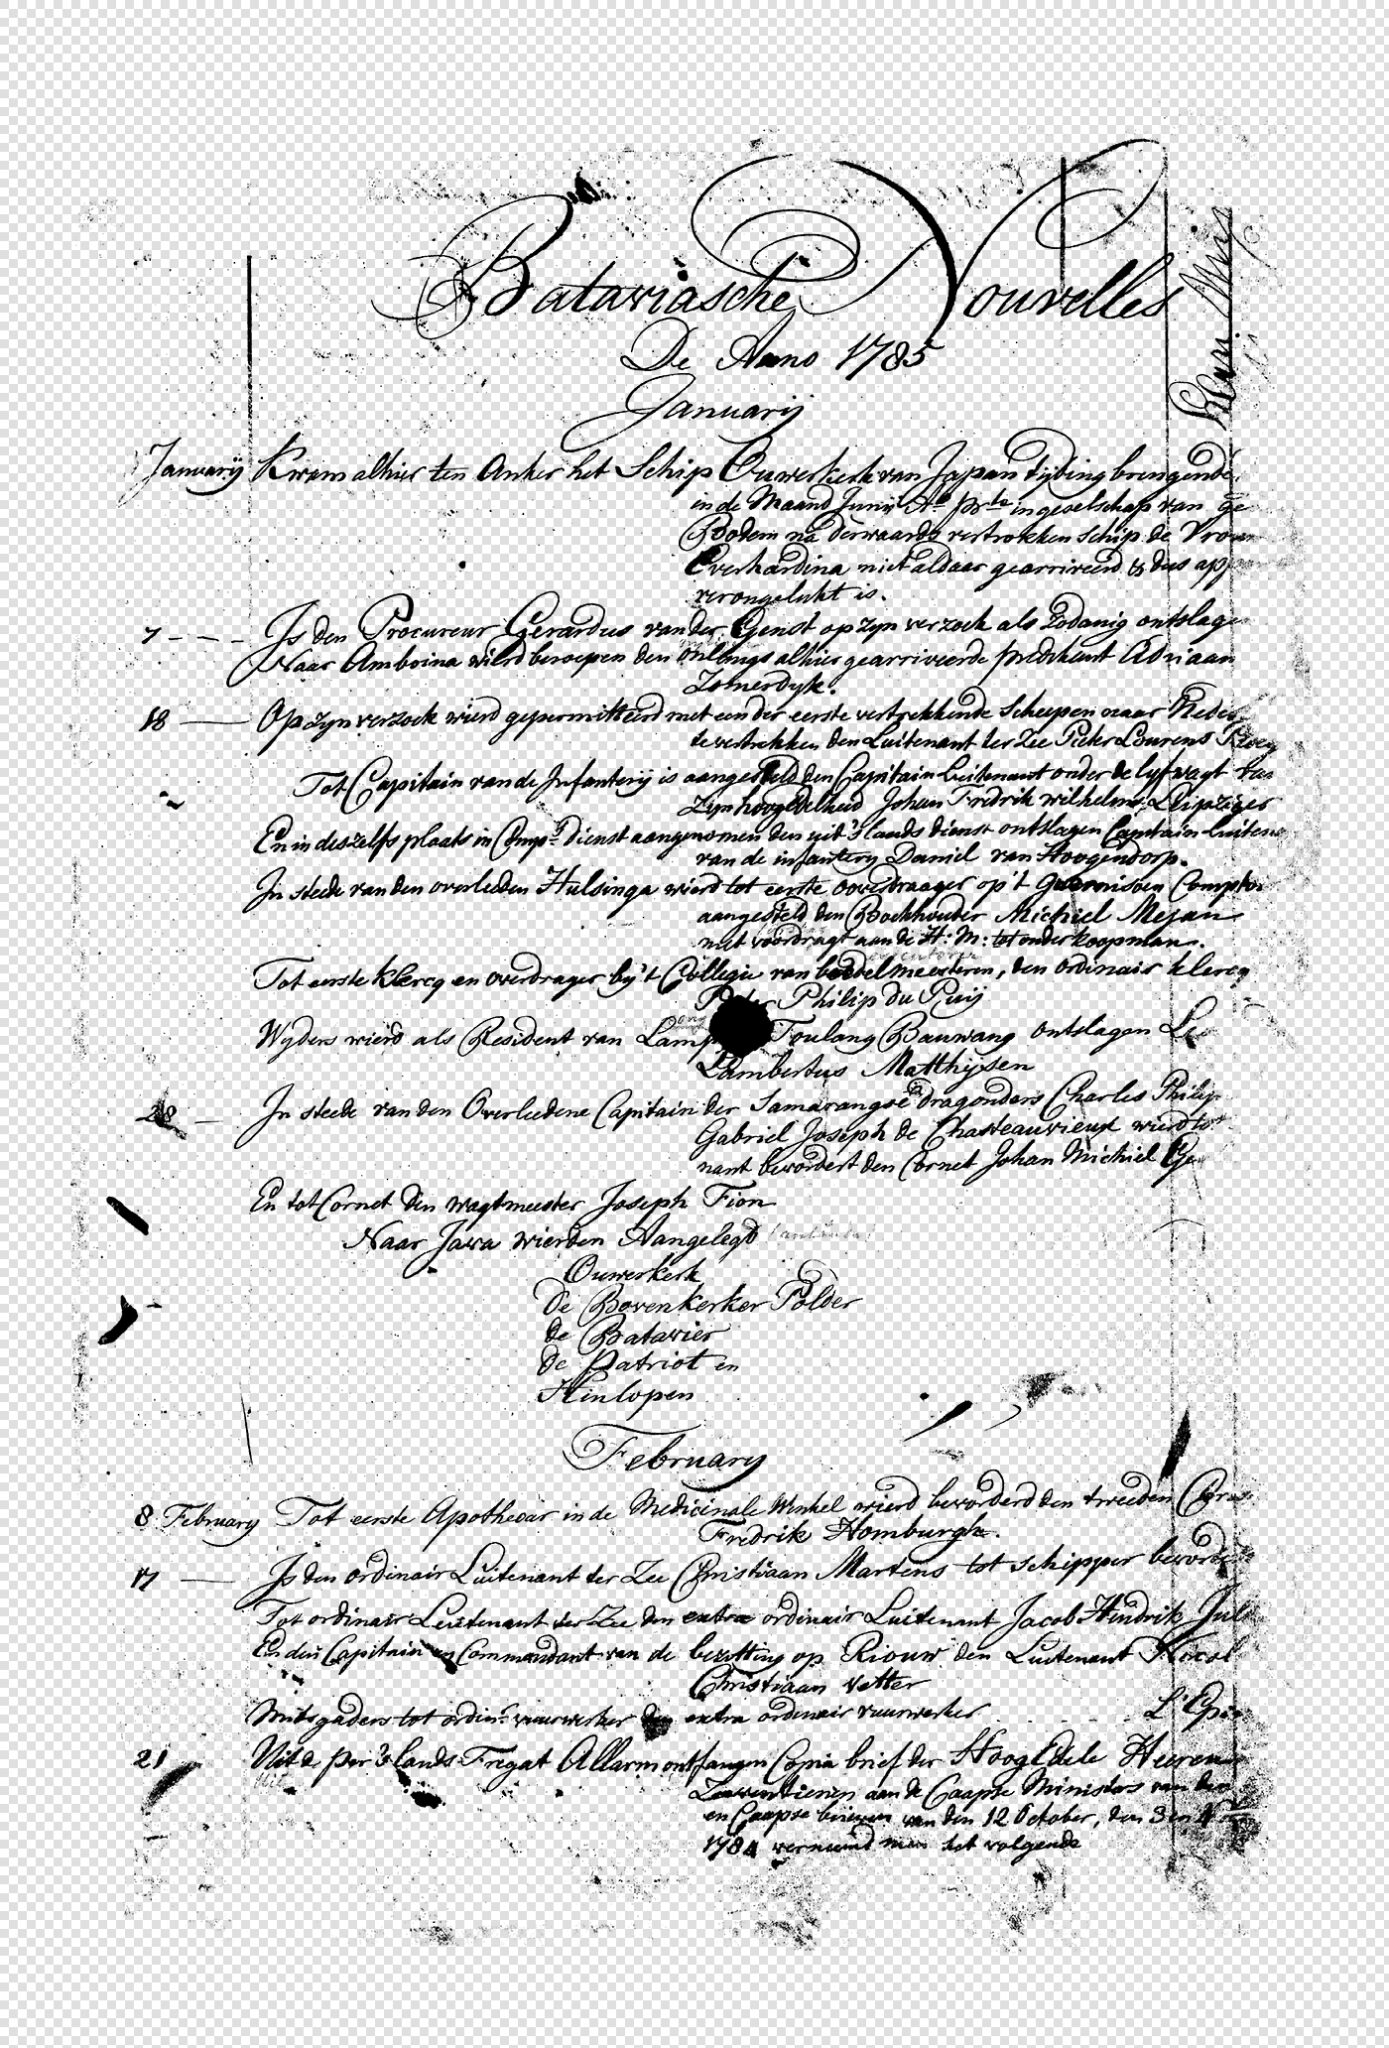 Bataviasche Nouvelles
De Anno 1785
Januarij
Januarij Kwam alhier ten Anker het Schip Ouwerkerk van Japan tijding brengende
in de Maand Junij Ao Pto in geselschap van ge
Bodem na derwaards vertrokken schip de Vrouw
Everhardina niet aldaar gearriveerd & dus app
verongelukt is.
7 - - - Is den Procureur Gerardus van der Genst op zyn verzoek als Zodanig ontslage
Naar Amboina wierd beroepen den onlangs alhier gearriveerde predikant Adriaan
Zomerdyk.
18 — Op zyn verzoek wierd gepermitteerd met een der eerste vertrekkende Scheepen naar Neder
te vertrekken den Luitenant ter Zee Pieter Lourens
Tot Capitain van de Infanterij is aangesteld den Capitain luitenant onder de lyfwagt van
Zyn hoogEdelheid Johan Fredrik wilhelm Leipziger
En in deszelfs plaats in Comps Dienst aangenomen den uit 's lands dienst ontslagen Capitain luitena
van de infantery Daniel van Hoogendorp.
In steede van den overleeden Hulsinga wierd tot eerste overdraager op 't Guarnisoen Comptoi
aangesteld den Boekhouder Michiel Mejan
met voordragt aan de H: M: tot onderkoopman.
Tot eerste Klercq en overdrager by 't Collegie van boedelmeesteren, den ordinair klercq
Philip du Puij
Wyders wierd als Resident van Lamp Toulang Bauwang ontslagen
Lambertus Matthijsen
28 — In steede van den Overleedene Capitain der Samarangse dragonders Charles Philip
Gabriel Joseph de Chasteauvieux wierd tot
nant bevordert den Cornet Johan Michiel Ge
En tot Cornet den wagtmeester Joseph Fion
Naar Java wierden Aangelegd
Ouwerkerk
de Bovenkerker Polder
de Batavier
de Patriot en
Hinlopen
February
8 February Tot eerste Apothecar in de Medicinale Winkel wierd bevorderd den tweeden
Fredrik Homburgh.
17 — Is den ordinair Luitenant ter Zee Christiaan Martens tot schipper bevorde
Tot ordinair Luitenant ter Zee den extra ordinair Luitenant Jacob Hendrik Jul
En den Capitain en Commandant van de bezetting op Riouw den Luitenant
Christiaan Vetter
Mitsgaders tot ordinr vuurwerker den extra ordinair vuurwerker
21 Uit de per 's lands Fregat Allarm ontfangen Copia brief der HoogEdele Heeren
Zeeventienen aan de Caapse Ministers van den
en Caapse brieven van den 12 October, den 3 en
1784 verneemd men het volgende